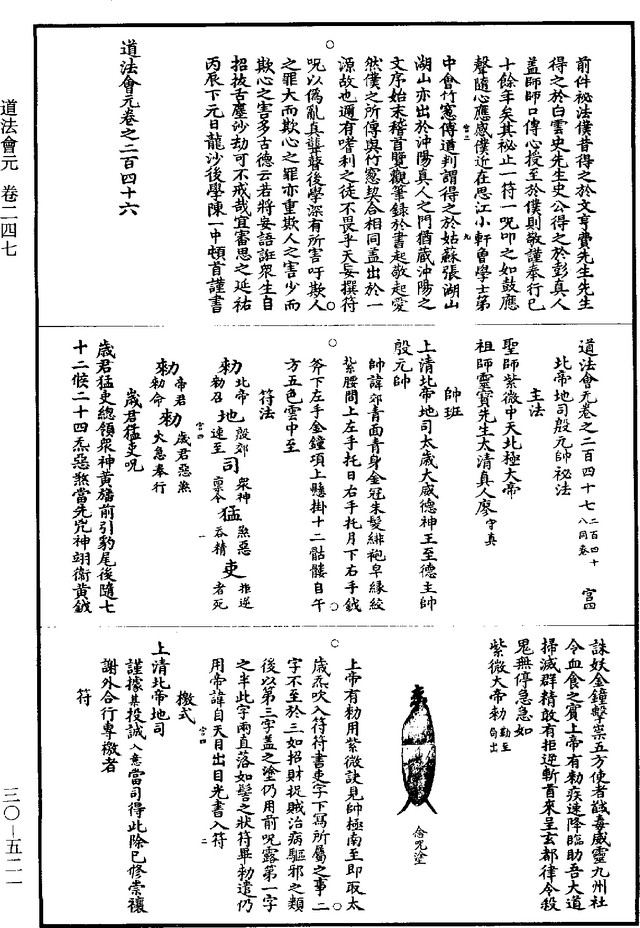 道法會元 卷二四七
前件祕法僕昔得之於文亨費先生先生
得之於白雲史先生史公得之於彭真人
蓋師師口傳心授至於僕則敬謹奉行已
十餘年矣其祕止一符一呪叩之如鼓應
聲隨心應感僕近在思江小軒曾學士第
中會竹窻傳道判謂得之於姑蘇張湖山
湖山亦出於沖陽真人之門猶蔵沖陽之
文序始末稽首覽觀筆錄於書起敬起愛
然僕之所傳與竹窻契合相同盖出於一
源故也邇有嗜利之徒不畏乎天妄撰符
呪以偽亂真聾瞽後學深有所害吁欺人
之罪大而欺心之罪亦重欺人之害少而
欺心之害多古德云若將妄語誑衆生自
招拔舌塵沙劫可不戒哉宜審思之延祐
丙辰下元日龍沙後學陳一中頓首謹書
道法會元卷之二百四十六
道法會元卷之二百四十七 二百四十八同卷 宫四
北帝地司殷元帥祕法
主法
聖師紫微中天北極大帝
祖師靈寳先生太清真人廖守真
帥班
上清北帝地司太歲大威德神王至德主帥
殷元帥
帥諱郊青面青身金冠朱髮緋袍皁緣絞
紮腰間上左手托日右手托月下右手鉞
斧下左手金鐘項上懸掛十二骷髏自午
方五色雲中至
符法
勑 北帝勑召 地 殷郊速至 司 衆神禀令 猛 煞惡吞精 吏 拒逆者死
勑 帝君勑令 勑 歲君惡煞火急奉行
歲君猛吏呪
歲君猛吏總領衆神黄旛前引豹尾後隨七
十二候二十四炁惡煞當先兇神翊衛黄鉞
誅妖金鐘擊祟五方使者馘毒威靈九州社
令血食之賓上帝有勑疾速降臨助吾大道
掃滅群精敢有拒逆斬首來呈玄都律令殺
鬼無停急急如
紫微大帝勑 勑至奉出
念呪塗
上帝有勑用紫微訣見帥極南至即取太
歲炁吹入符符書吏字下寫所屬之事二
字不至於三如招財捉賊治病驅邪之類
後以第三字盖之塗仍用前呪露第一字
之半此字兩直落如髻之狀符畢勑遣仍
用帝諱自天目出目光書入符
檄式
上清北帝地司
謹據某投誠入意當司得此除已修崇禳
謝外合行專檄者
符
三〇—五二一